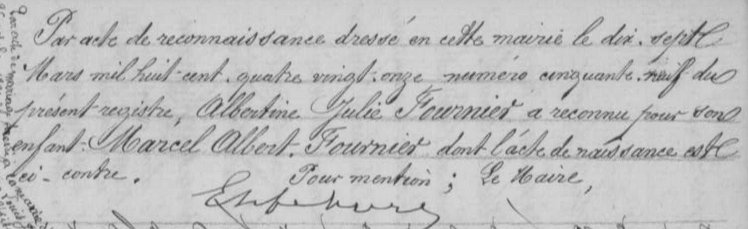 Par acte de reconnaissance dressé en cette mairie le dix-sept
Mars mil huit cent quatre vingt onze numéro cinquante neuf du
présent registre, Albertine Julie Fournier a reconnu pour son
enfant Marcel Albert Fournier dont l'acte de naissance est
ci-contre. Pour mention ; Le Maire,